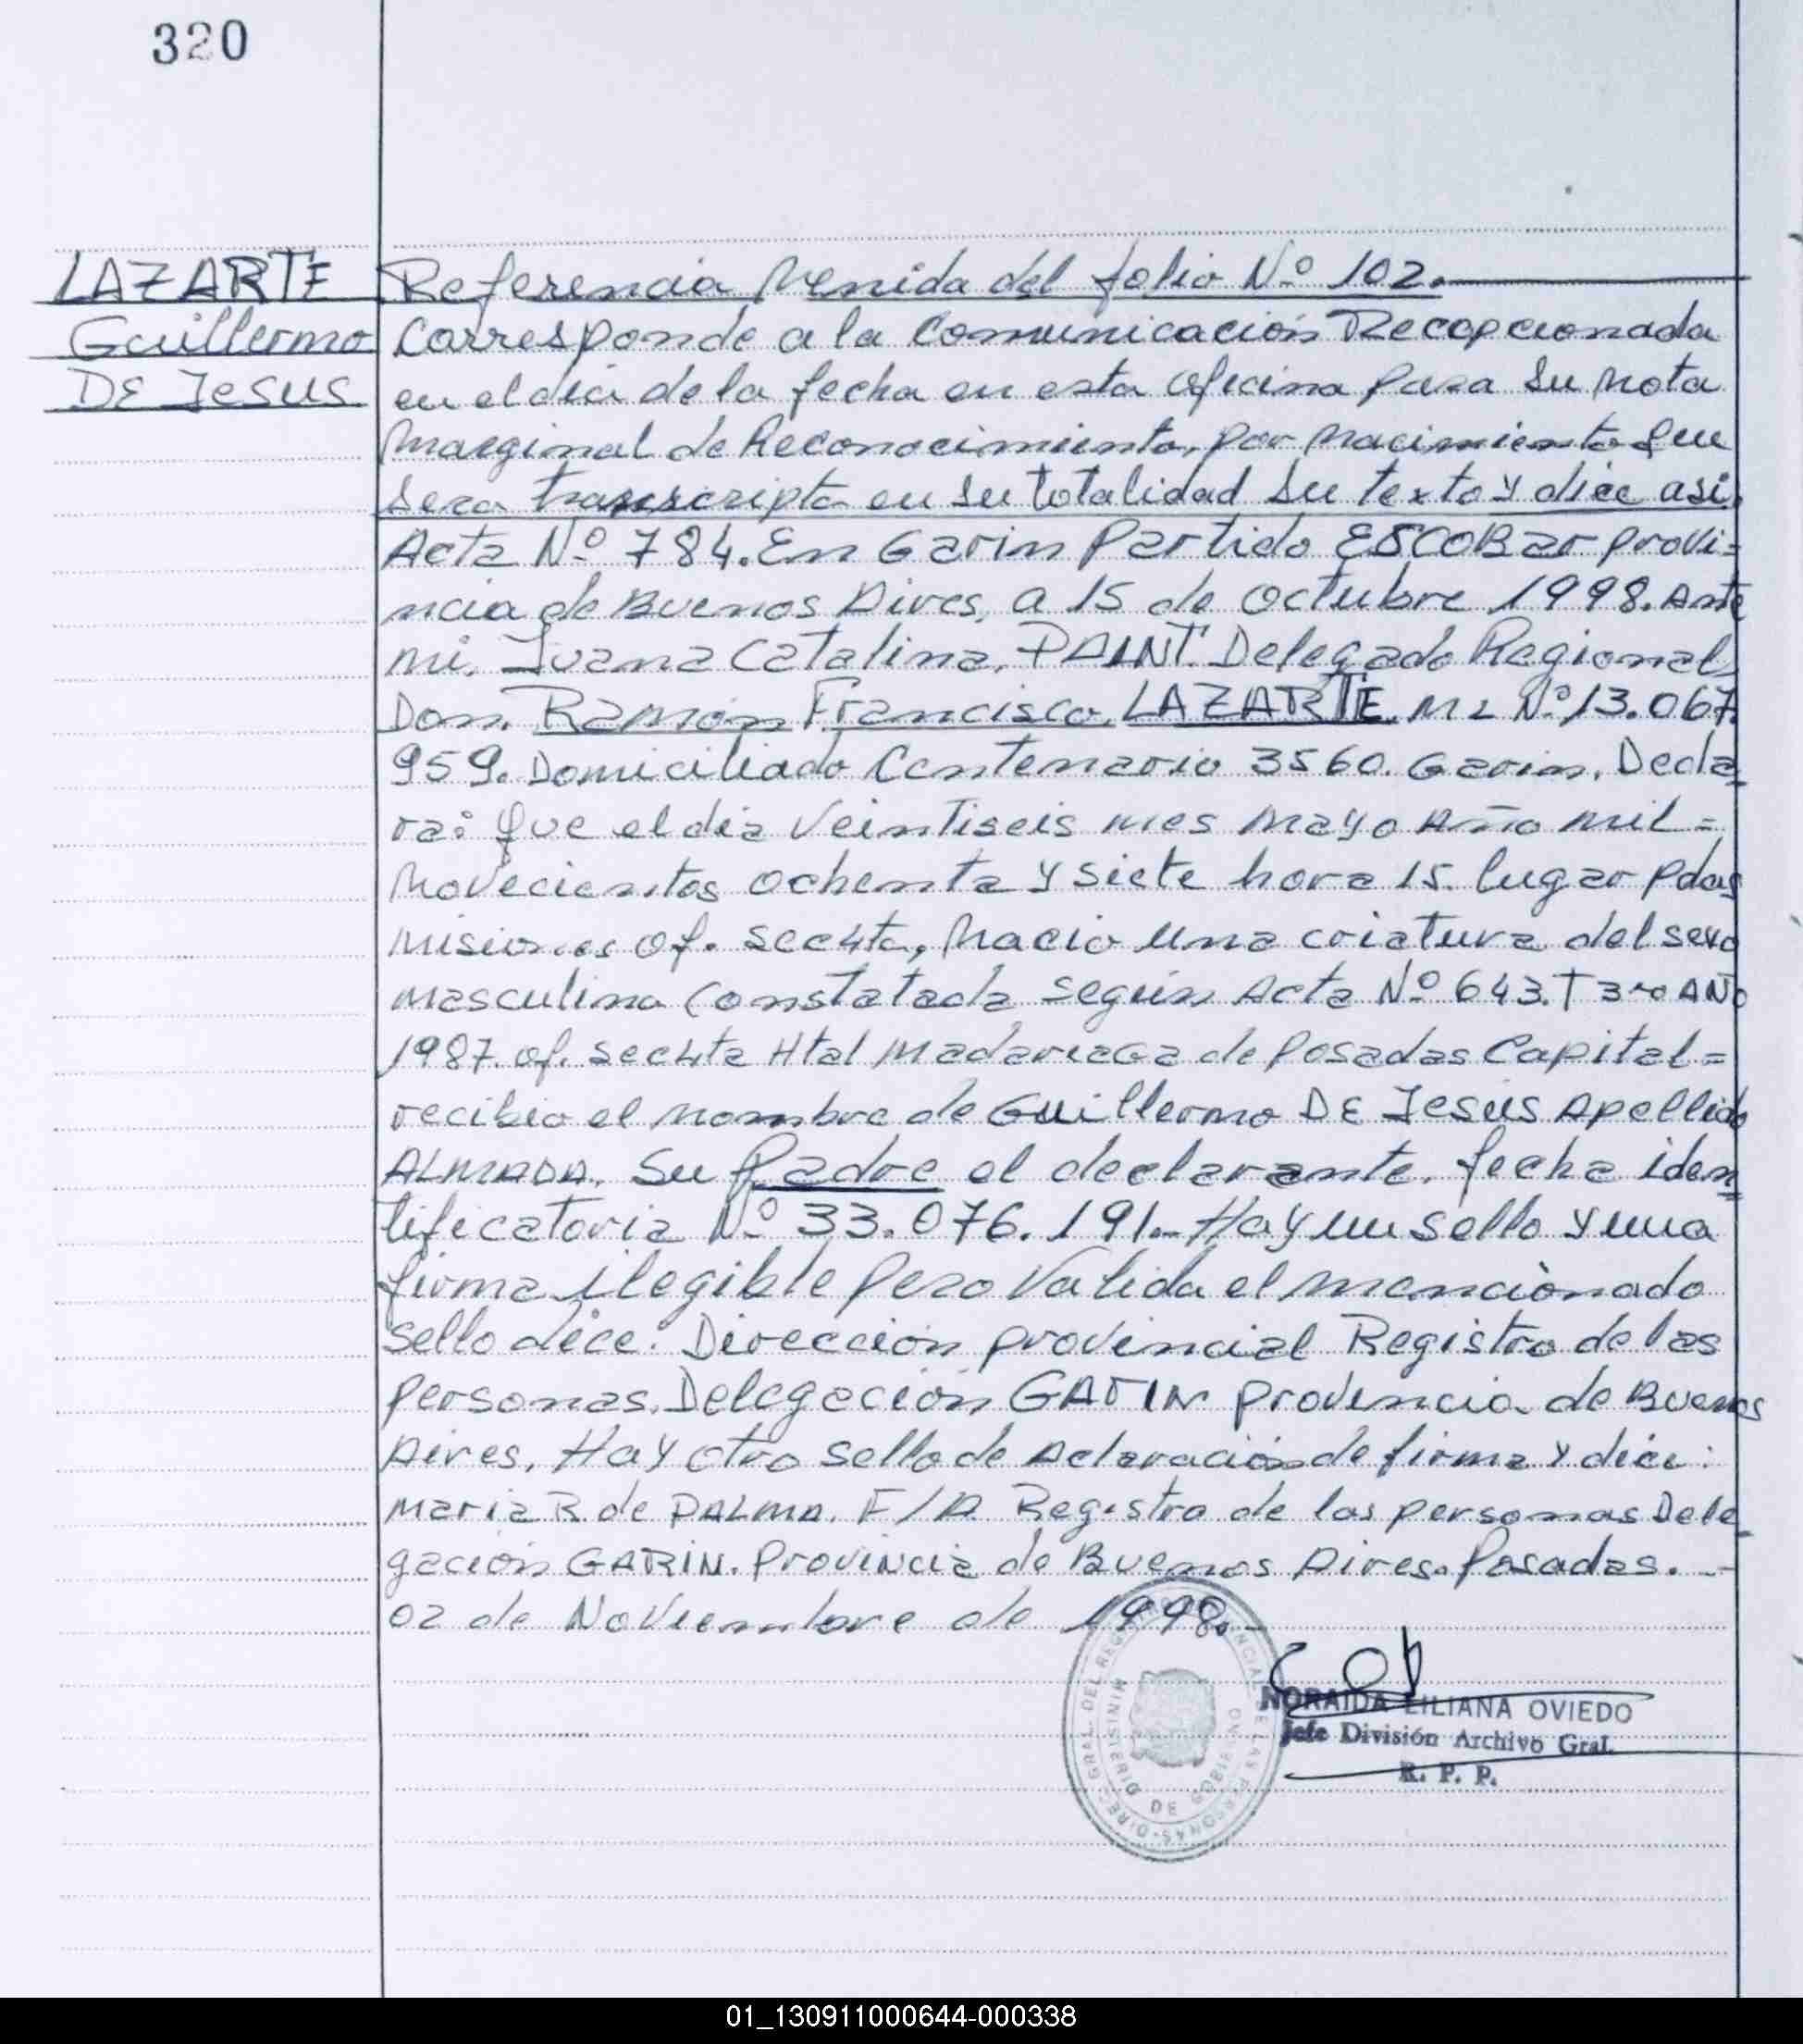 320
LAZARTE
Guillermo
DE Jesus
Referencia Venida del folio Nº 102.
Corresponde a la Comunicación Recepcionada
en el dia de la fecha en esta oficina para su nota
Marginal de Reconocimiento, por nacimiento que
sera transcripta en su totalidad su texto y dice asi.
Acta Nº 784. En Garin Partido ESCOBAR provi=
ncia de Buenos Aires, a 15 de Octubre 1998. Ante
mi, Juana Catalina, Delegado Regional
Don, Ramón Francisco, LAZARTE. M I Nº 13.067
959. Domiciliado Centenario 3560. Garin, Decla
ra: Que el dia Veintiseis mes Mayo Año mil=
Novecientos ochenta y siete hora 15. lugar Pdas
Misiones of. Sec4ta, Nacio una criatura del sexo
masculino Constatada según Acta Nº 643. T 3ro AÑO
1987. of. Sec4ta Htal Madariaga de Posadas Capital=
recibio el nombre de Guillermo DE Jesús Apellido
ALMADA. Su Padre el declarante. fecha iden
tificatoria Nº 33.076.191.- Hay un sello y una
firma ilegible pero Valida el mencionado
sello dice: Dirección provincial Registro de las
personas. Delegación GARIN provincia de Buenos
Aires, Hay otro sello de Aclaración de firma y dice:
Maria R. de PALMA. F/A Registro de las personas Dele
gación GARIN. Provincia de Buenos Aires. Posadas. -
02 de Noviembre de 1998.-
NORAIDA LILIANA OVIEDO
Jefe División Archivo Gral.
R. P. P.
DIREC. GRAL. DEL REG. PROVINCIAL DE LAS PERSONAS
MINISTERIO DE GOBIERNO
01_130911000644-000338